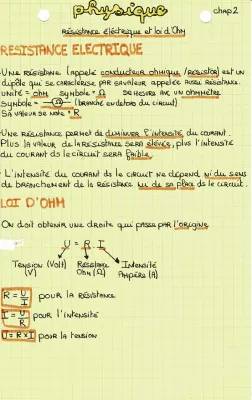 physique
chap 2
résistance électrique et loi d'Ohm
RESISTANCE ELECTRIQUE
- Une résistance (appelé conducteur ohmique / resistor) est un
dipôle qui se caractérise par sa valeur appelée aussi résistance.
unité = ohm symbole = Ω se mesure avec un ohmmètre
symbole = -Ω- (branché en dehors du circuit)
Sa valeur se note = R
Une résistance permet de diminuer l'intensité du courant.
Plus la valeur de la résistance sera élevée, plus l'intensité
du courant ds le circuit sera faible.
- L'intensité du courant ds le circuit ne dépend ni du sens
du branchement de la résistance ni de sa place ds le circuit.
LOI D'OHM
On doit obtenir une droite qui passe par l'origine
U = R . I
Tension (Volt) Résistance Intensité
(V) Ohm (Ω) Ampère (A)
R = U/I pour la résistance
I = U/R pour l'intensité
U = R x I pour la tension